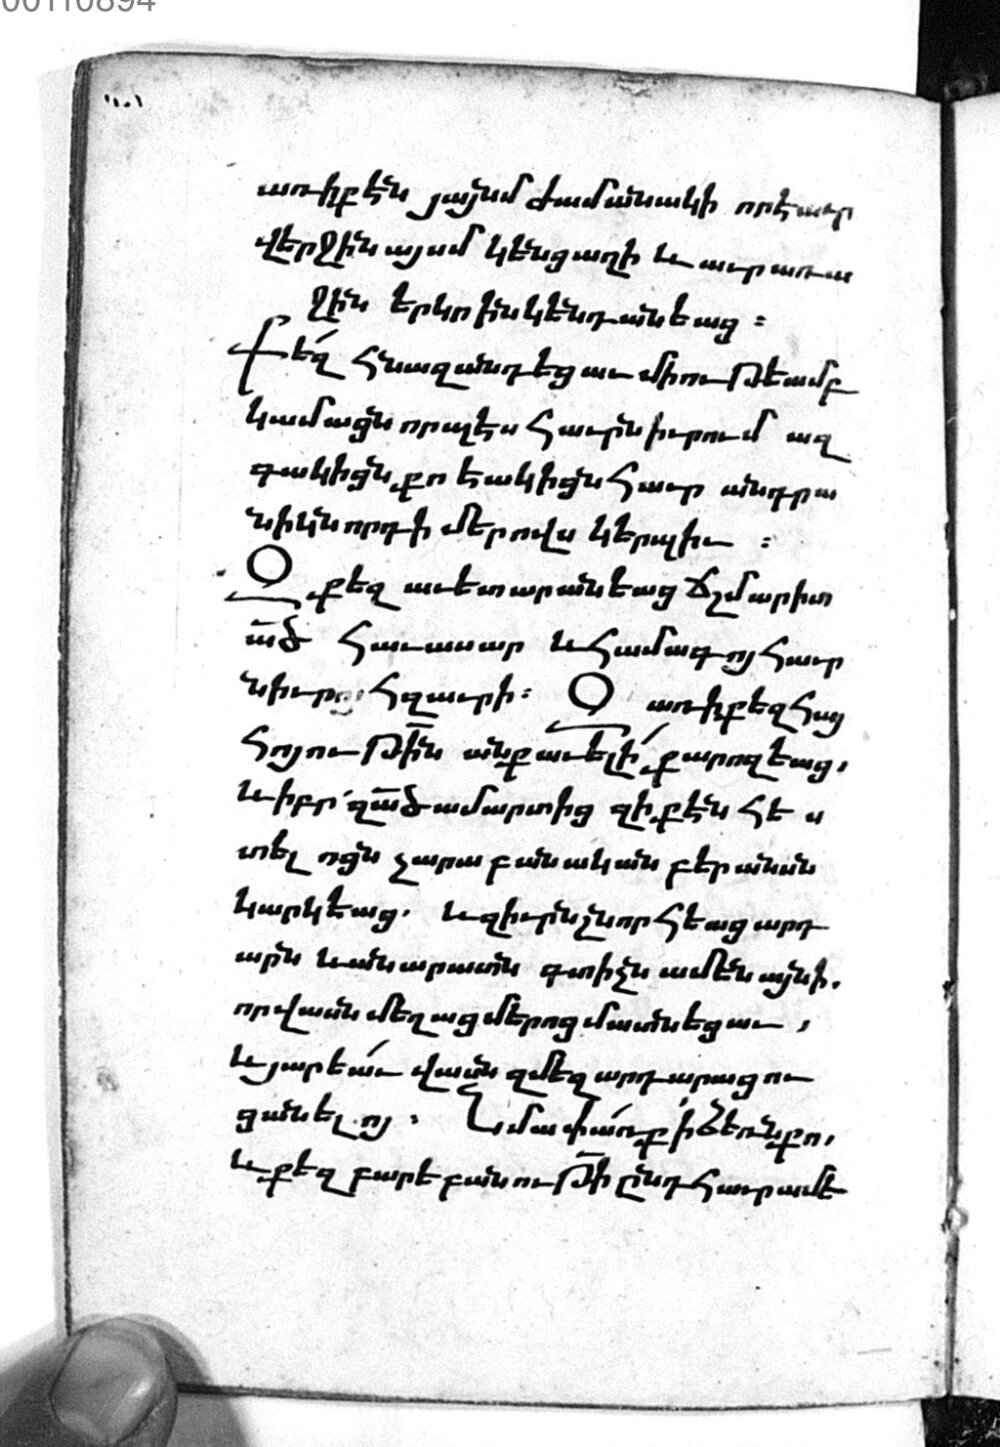 00110894
առիքէն յայնմ ժամանակի որէաւր
վերջին այսմ կենցաղի և աւր առա
ջին երկրին կենդանեաց ։
Քեզ հնազանդեցաւ միութեամբ
կամացն որպէս հաւրն իւրում ազ
գակիցն քո էակիցն հաւր անդրա
նիկն որդի մերովս կերպիւ ։
Զքեզ աւետարանեաց ճշմարիտ
ած հաւասար և համագոյ հաւր
հզաւրի։ Զառիքեզ հայ
հոյութին անքաւելի քարոզեաց,
և իբր զածամարտից զի քէն հե ս
տել ոցն չարաբանական բերանսն
կարկեաց. և զիւրնշնորհեաց արդ
արն և անարատն գտիչն ամենայնի.
որ վասն մեղաց մերոց մատնեցաւ ,
և յարեաւ վասն զմեզ արդարացու
ցանելոյ . Նմա փառք ի ձեռն քո,
և քեզ բարեբանութի ընդ հաւր ամե